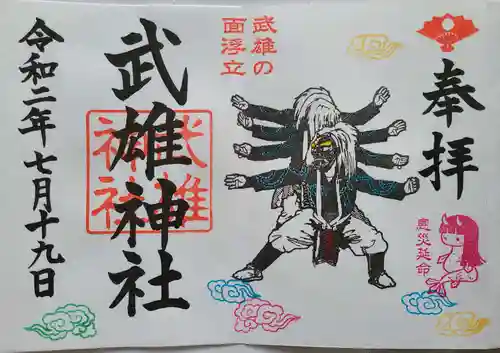 奉拝
悪災延命
武雄の
面浮立
武雄神社
武雄
神社
令和二年七月十九日